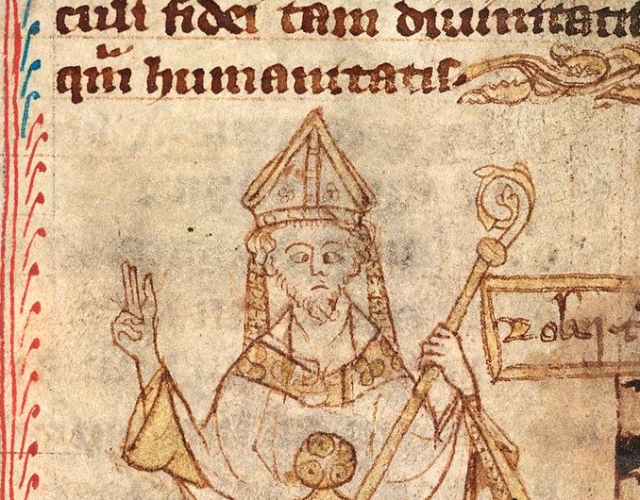 culi fidei tam diuinitatis
qui humanitatis.